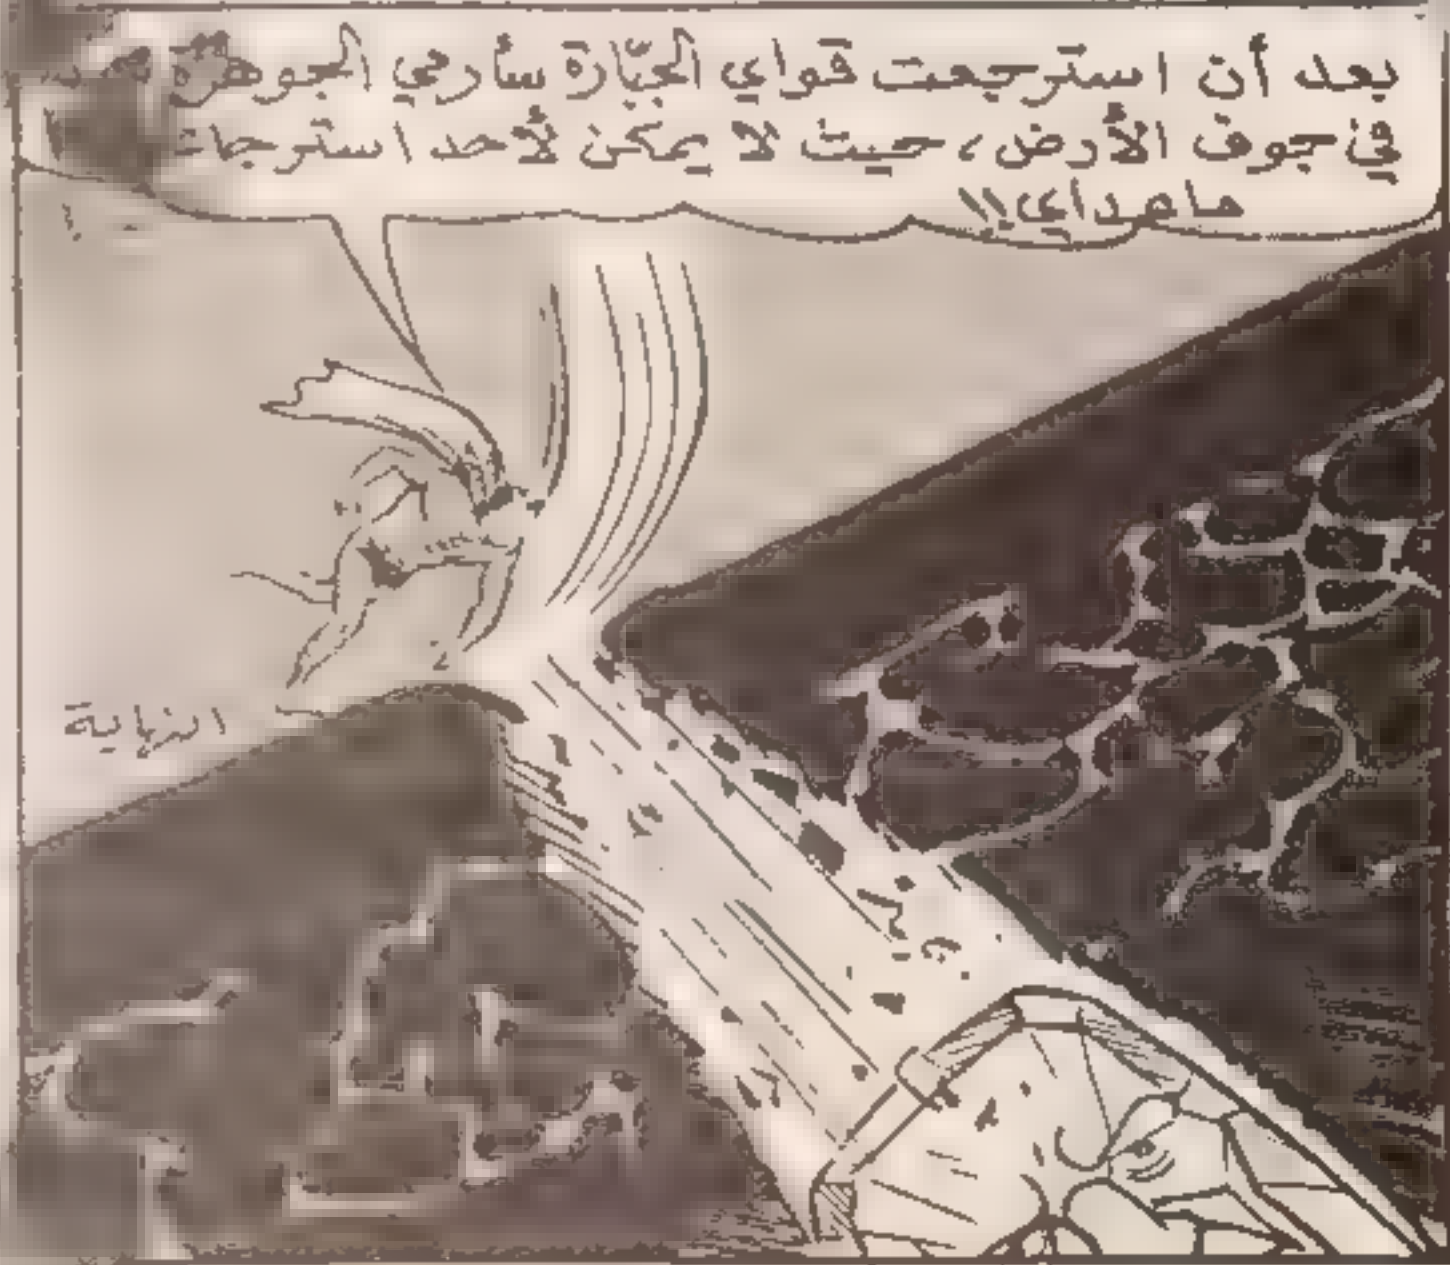 بعد أن استرجعت قواي الجبّارة سأرمي الجوهرة
في جوف الأرض، حيث لا يمكن لأحد
ماعداي!!
النهاية